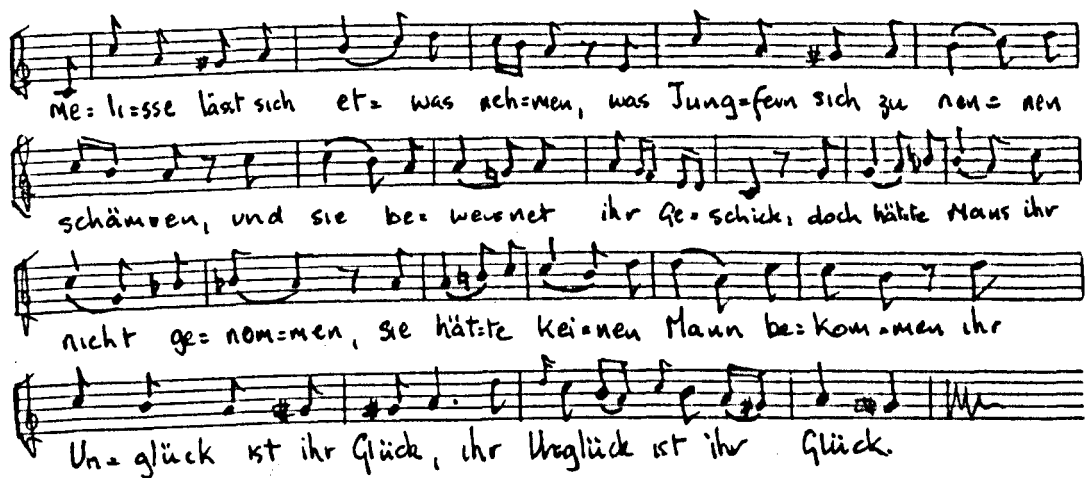 Me=li=sse lässt sich et= was neh=men, was Jung=fern sich zu nen= nen
schäm=en, und sie be= weinet ihr Ge=schick; doch hät=te Hans ihr
nicht ge= nom=men, sie hät=te kei=nen Mann be=kom=men ihr
Un= glück ist ihr Glück, ihr Unglück ist ihr Glück.